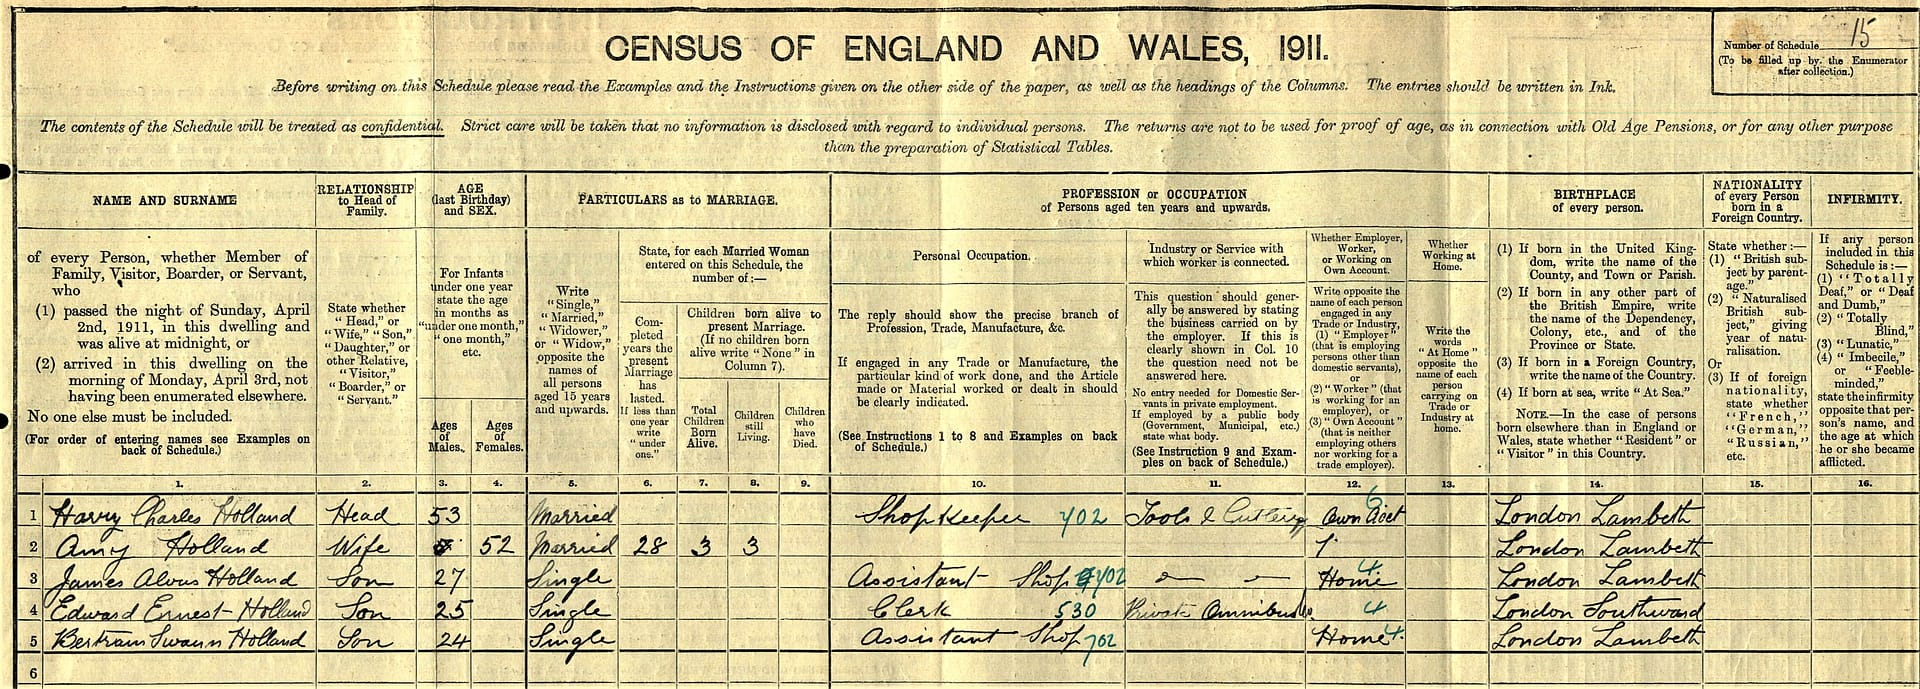 CENSUS OF ENGLAND AND WALES, 1911.
Number of Schedule 15
(To be filled up by the Enumerator
after collection.)
Before writing on this Schedule please read the Examples and the Instructions given on the other side of the paper, as well as the headings of the Columns. The entries should be written in Ink.
The contents of the Schedule will be treated as confidential. Strict care will be taken that no information is disclosed with regard to individual persons. The returns are not to be used for proof of age, as in connection with Old Age Pensions, or for any other purpose
than the preparation of Statistical Tables.
NAME AND SURNAME
RELATIONSHIP
to Head of
Family.
AGE
(last Birthday)
and SEX.
PARTICULARS as to MARRIAGE.
PROFESSION or OCCUPATION
of Persons aged ten years and upwards.
BIRTHPLACE
of every person.
NATIONALITY
of every Person
born in a
Foreign Country.
INFIRMITY.
of every Person, whether Member of
Family, Visitor, Boarder, or Servant,
who
(1) passed the night of Sunday, April
2nd, 1911, in this dwelling and
was alive at midnight, or
(2) arrived in this dwelling on the
morning of Monday, April 3rd, not
having been enumerated elsewhere.
No one else must be included.
(For order of entering names see Examples on
back of Schedule.)
State whether
"Head," or
"Wife," "Son,"
"Daughter," or
other Relative,
"Visitor,"
"Boarder," or
"Servant."
For Infants
under one year
state the age
in months as
"under one month,"
"one month,"
etc.
Ages
of
Males.
Ages
of
Females.
Write
"Single,"
"Married,"
"Widower,"
or "Widow,"
opposite the
names of
all persons
aged 15 years
and upwards.
State, for each Married Woman
entered on this Schedule, the
number of:—
Com-
pleted
years the
present
Marriage
has
lasted.
If less than
one year
write
"under
one."
Children born alive to
present Marriage.
(If no children born
alive write "None" in
Column 7).
Total
Children
Born
Alive.
Children
still
Living.
Children
who
have
Died.
Personal Occupation.
The reply should show the precise branch of
Profession, Trade, Manufacture, &c.
If engaged in any Trade or Manufacture, the
particular kind of work done, and the Article
made or Material worked or dealt in should
be clearly indicated.
(See Instructions 1 to 8 and Examples on back
of Schedule.)
Industry or Service with
which worker is connected.
This question should gener-
ally be answered by stating
the business carried on by
the employer. If this is
clearly shown in Col. 10
the question need not be
answered here.
No entry needed for Domestic Ser-
vants in private employment.
If employed by a public body
(Government, Municipal, etc.)
state what body.
(See Instruction 9 and Exam-
ples on back of Schedule.)
Whether Employer,
Worker,
or Working on
Own Account.
Write opposite the
name of each person
engaged in any
Trade or Industry,
(1) "Employer"
(that is employing
persons other than
domestic servants),
or
(2) "Worker" (that
is working for an
employer), or
(3) "Own Account"
(that is neither
employing others
nor working for a
trade employer).
Whether
Working at
Home.
Write the
words
"At Home"
opposite the
name of each
person
carrying on
Trade or
Industry at
home.
(1) If born in the United King-
dom, write the name of the
County, and Town or Parish.
(2) If born in any other part of
the British Empire, write
the name of the Dependency,
Colony, etc., and of the
Province or State.
(3) If born in a Foreign Country,
write the name of the Country.
(4) If born at sea, write "At Sea."
NOTE.—In the case of persons
born elsewhere than in England or
Wales, state whether "Resident" or
"Visitor" in this Country.
State whether:—
(1) "British sub-
ject by parent-
age."
(2) "Naturalised
British sub-
ject," giving
year of natu-
ralisation.
Or
(3) If of foreign
nationality,
state whether
"French,"
"German,"
"Russian,"
etc.
If any person
included in this
Schedule is:—
(1) "Totally
Deaf," or "Deaf
and Dumb,"
(2) "Totally
Blind,"
(3) "Lunatic,"
(4) "Imbecile,"
or "Feeble-
minded,"
state the infirmity
opposite that per-
son's name, and
the age at which
he or she became
afflicted.
1. 2. 3. 4. 5. 6. 7. 8. 9. 10. 11. 12. 13. 14. 15. 16.
1 Harry Charles Holland Head 53 Married Shopkeeper 702 Tools & Cutlery Own Acct 6 London Lambeth
2 Amy Holland Wife 52 Married 28 3 3 London Lambeth
3 James Alvus Holland Son 27 Single Assistant Shop 702 Home 4 London Lambeth
4 Edward Ernest Holland Son 25 Single Clerk 530 Private Omnibus 4 London Southward
5 Bertram Swann Holland Son 24 Single Assistant Shop 702 Home 4 London Lambeth
6